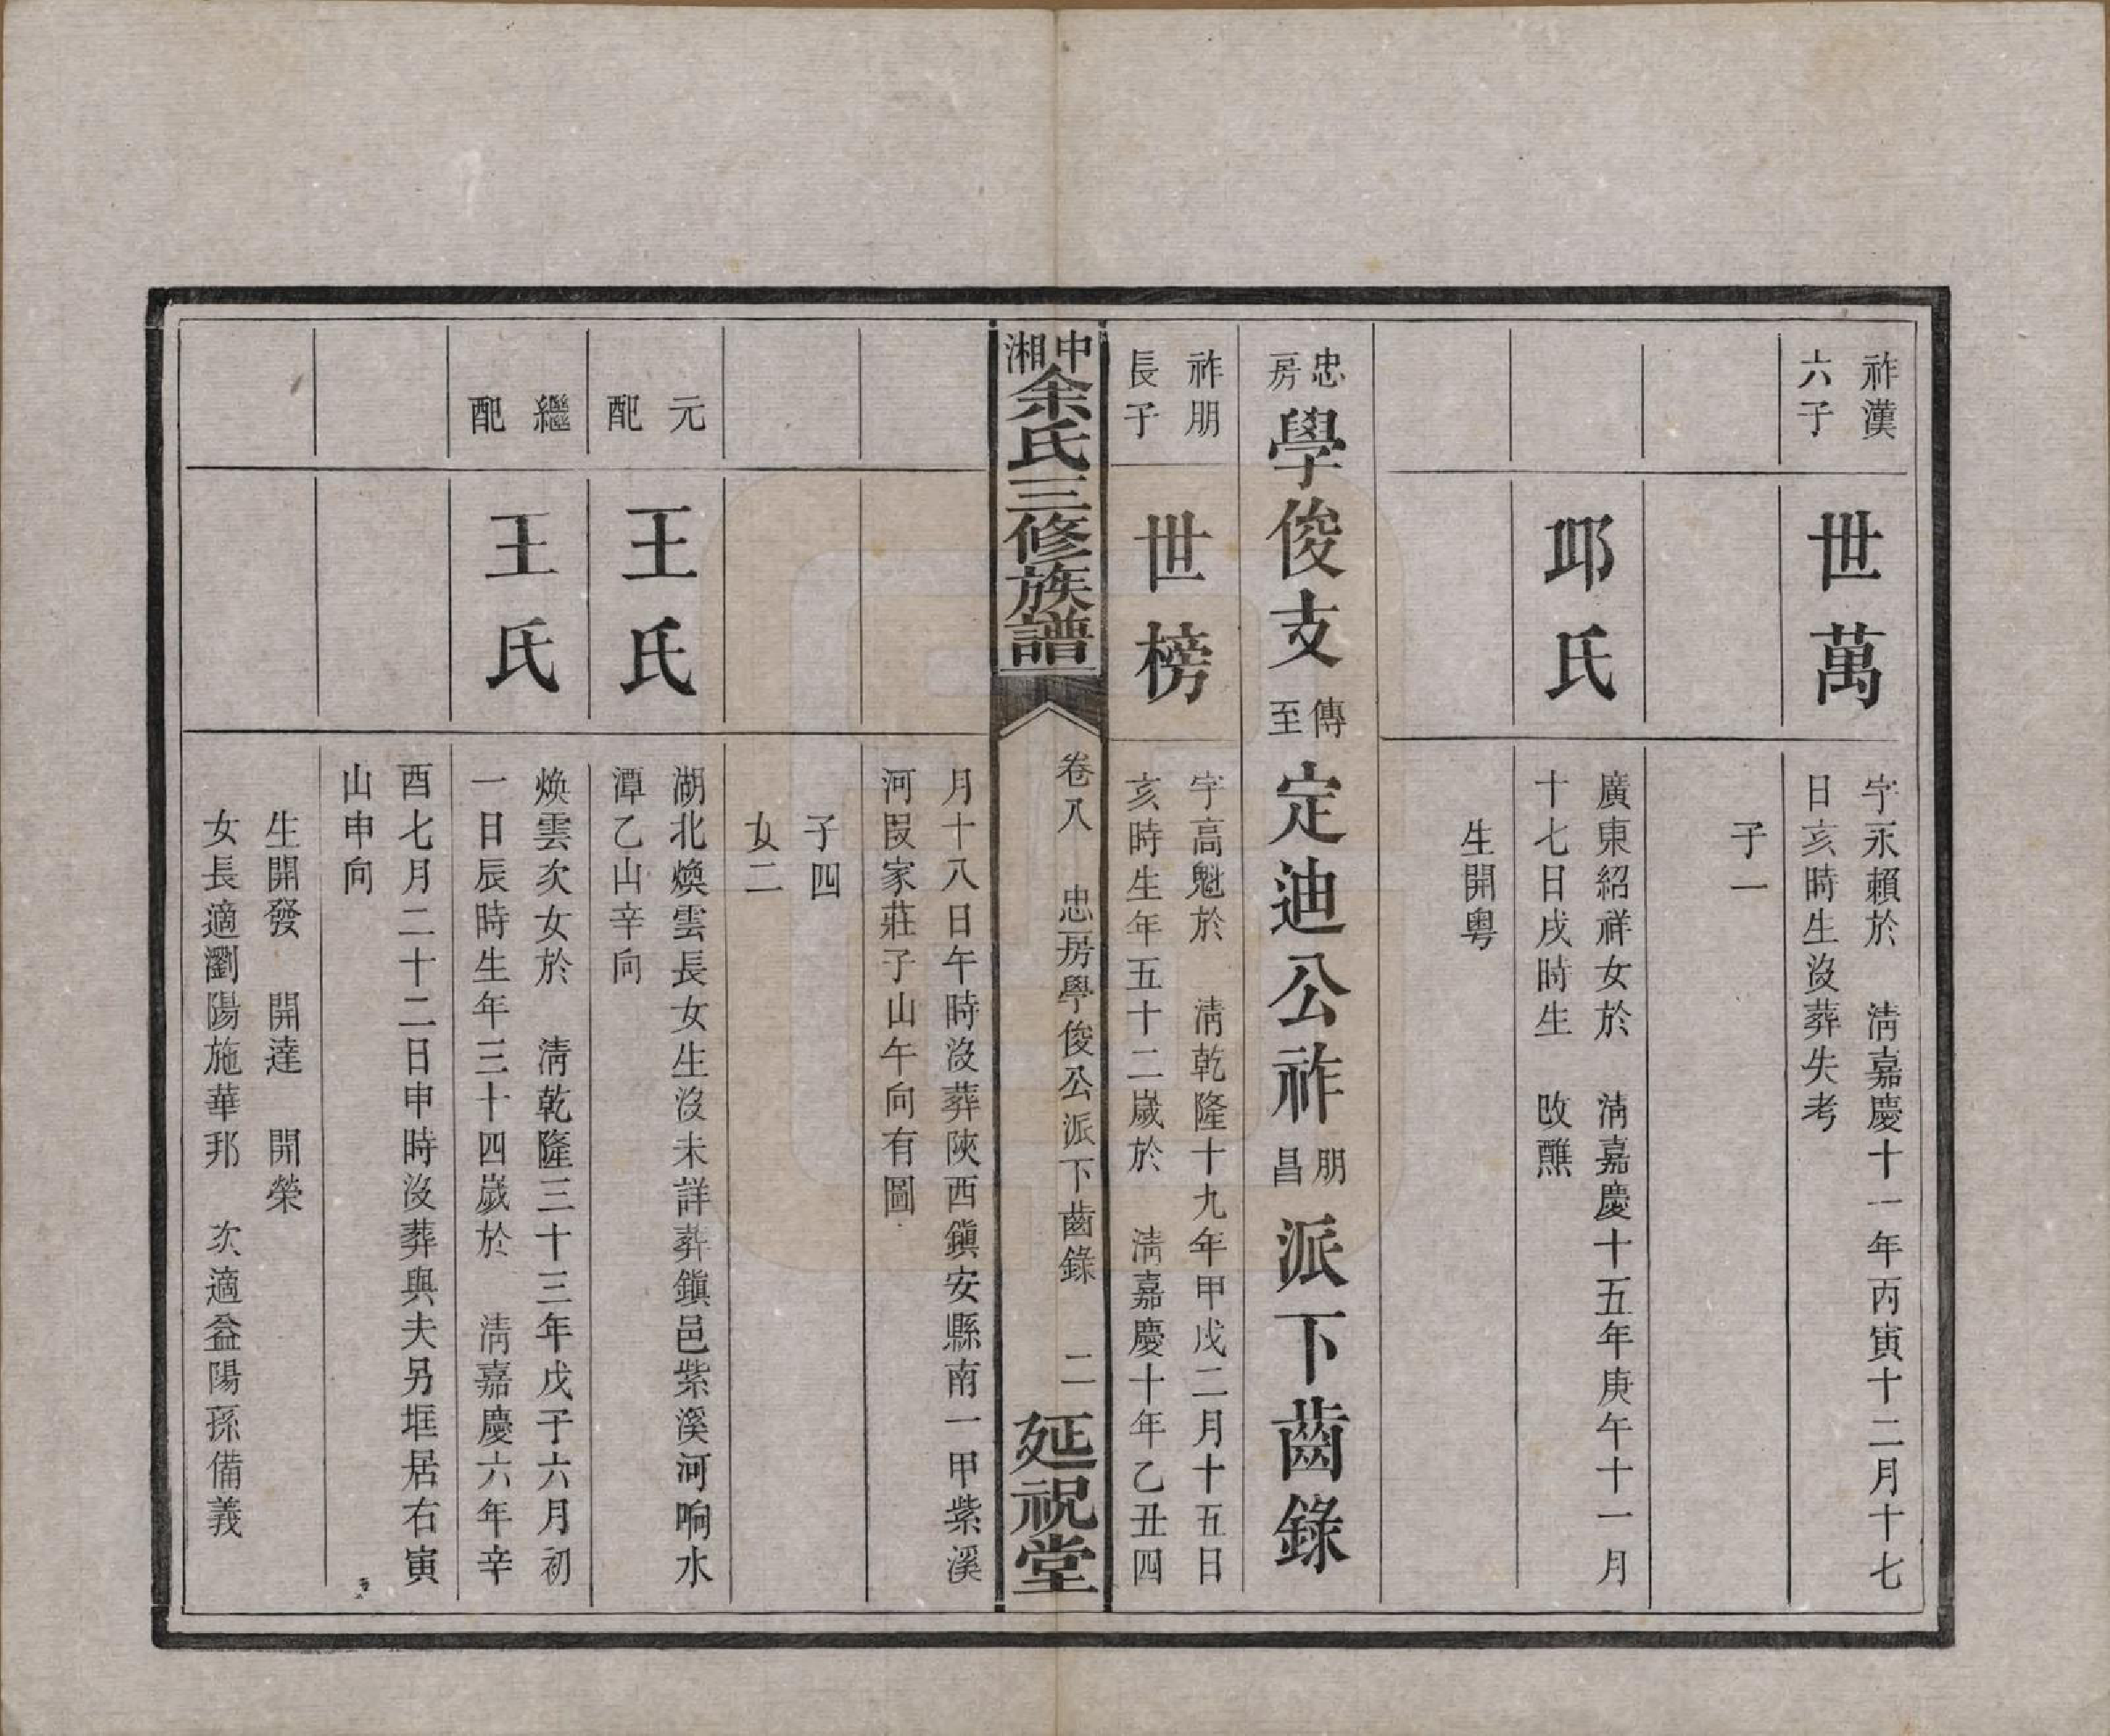 祚漢
六子
世萬
字永賴於　淸嘉慶十一年丙寅十二月十七
日亥時生沒葬失考
子一
邱氏
廣東紹祥女於　淸嘉慶十五年庚午十一月
十七日戌時生　改醮
生開粤
忠房學俊支傳至定迪公祚朋昌派下齒錄
祚朋
長子
世榜
字高魁於　淸乾隆十九年甲戌二月十五日
亥時生年五十二歲於　淸嘉慶十年乙丑四
中湘余氏三修族譜
卷八　忠房學俊公派下齒錄　二
延祝堂
月十八日午時沒葬陝西鎭安縣南一甲紫溪
河叚家莊子山午向有圖
子四
女二
元配
王氏
湖北煥雲長女生沒未詳葬鎭邑紫溪河响水
潭乙山辛向
繼配
王氏
煥雲次女於　淸乾隆三十三年戊子六月初
一日辰時生年三十四歲於　淸嘉慶六年辛
酉七月二十二日申時沒葬與夫另堆居右寅
山申向
生開發　開達　開榮
女長適瀏陽施華邦　次適益陽孫備義